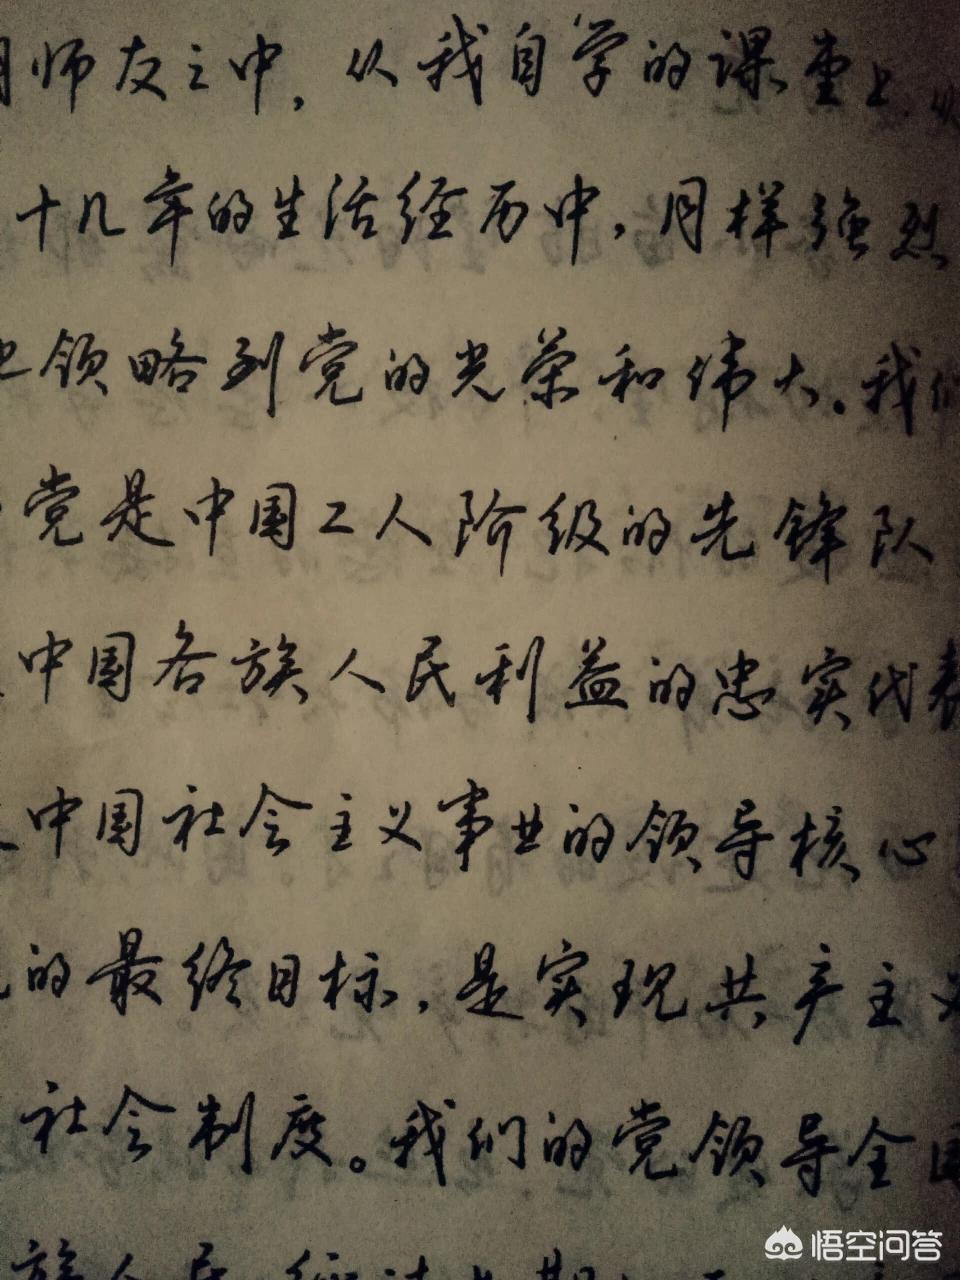 师友之中，从我自学的课堂上，
十几年的生活经历中，同样强烈
地领略到党的光荣和伟大。我们
党是中国工人阶级的先锋队
中国各族人民利益的忠实代表
中国社会主义事业的领导核心
的最终目标，是实现共产主义
社会制度。我们的党领导全国
族人民
悟空问答